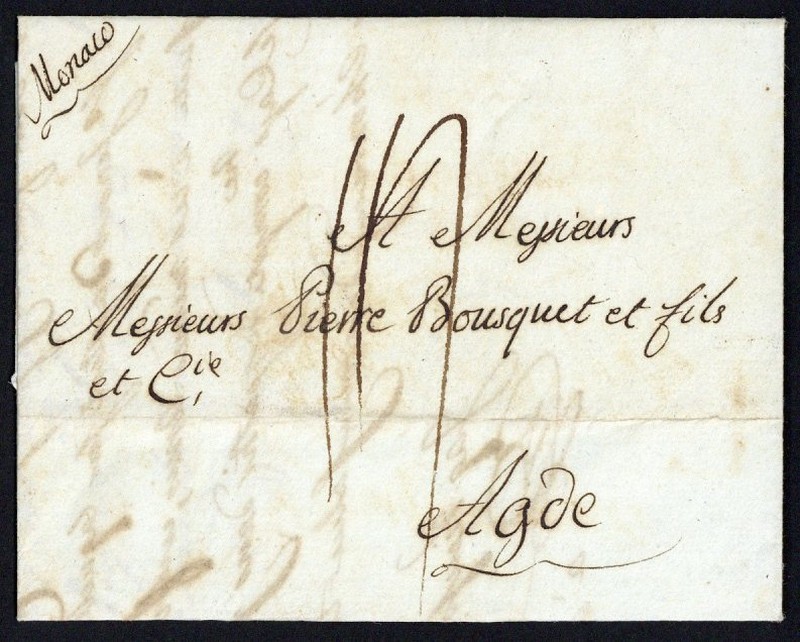 Monaco
A Messieurs
Messieurs Pierre Bousquet et fils
et Cie
Agde